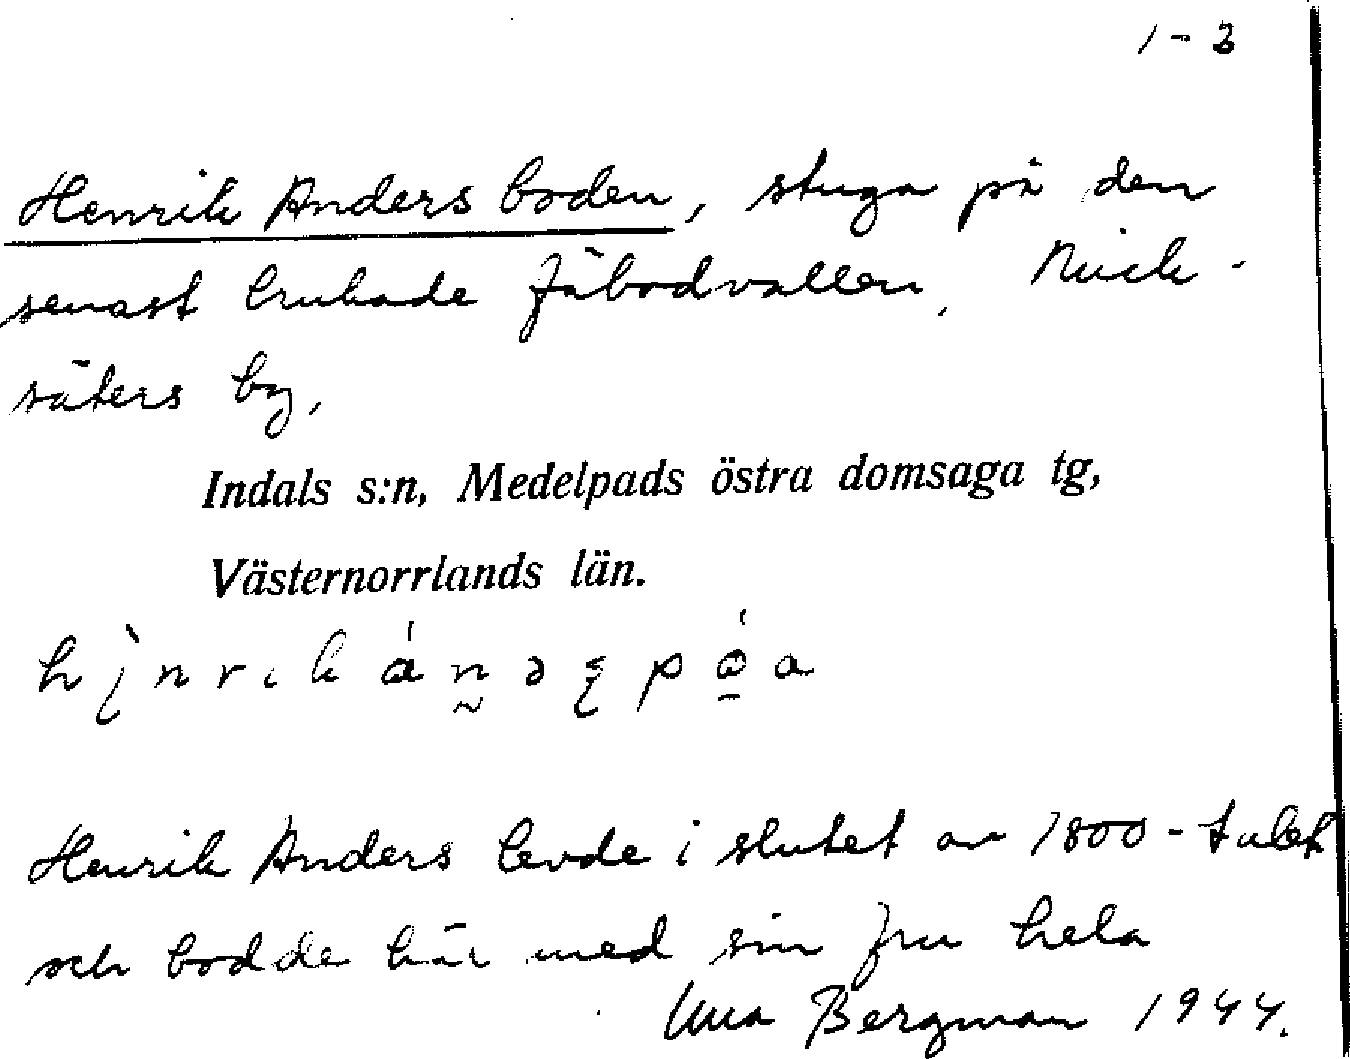 1-3
Henrik Anders boden, stuga på den
senast brukade fäbodvallen,
säters by,
Indals s:n, Medelpads östra domsaga tg,
Västernorrlands län.
Henrik Anders levde i slutet av 1800-talet
och bodde här med sin fru hela
Bergman 1944.